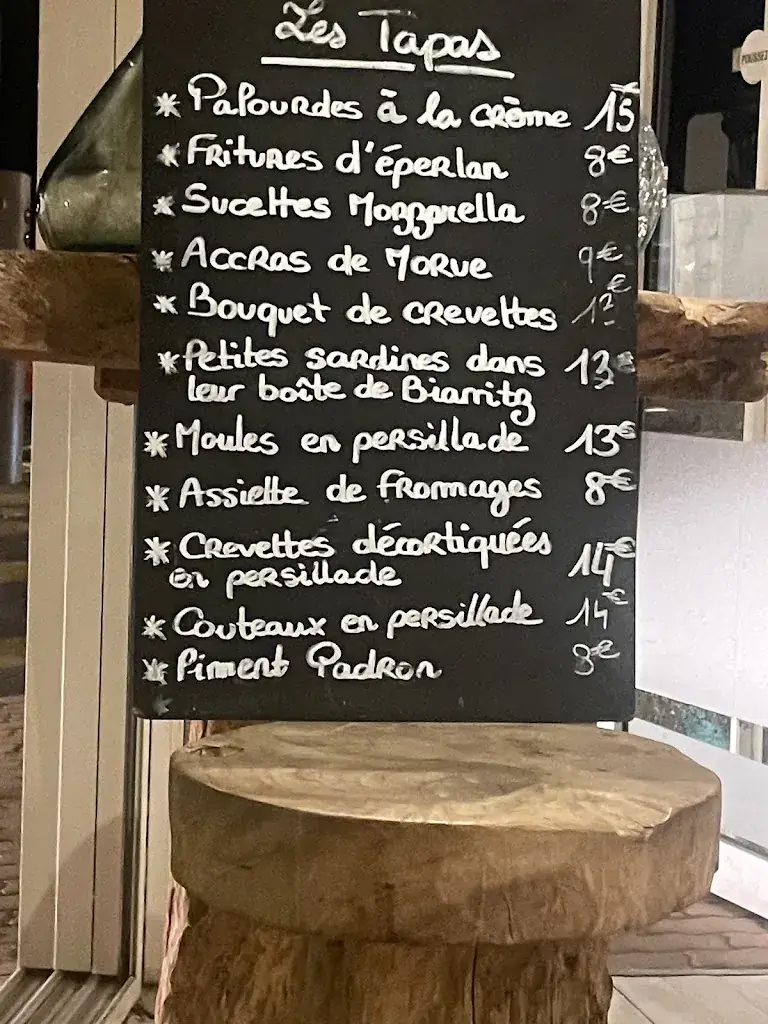 Les Tapas
* Palourdes à la crème 15€
* Fritures d'éperlan 8€
* Sucettes Mozzarella 8€
* Accras de Morue 9€
* Bouquet de crevettes 12€
* Petites sardines dans 13€
leur boîte de Biarritz
* Moules en persillade 13€
* Assiette de fromages 8€
* Crevettes décortiquées
en persillade 14€
* Couteaux en persillade 14€
* Piment Padron 8€
POUSSEZ